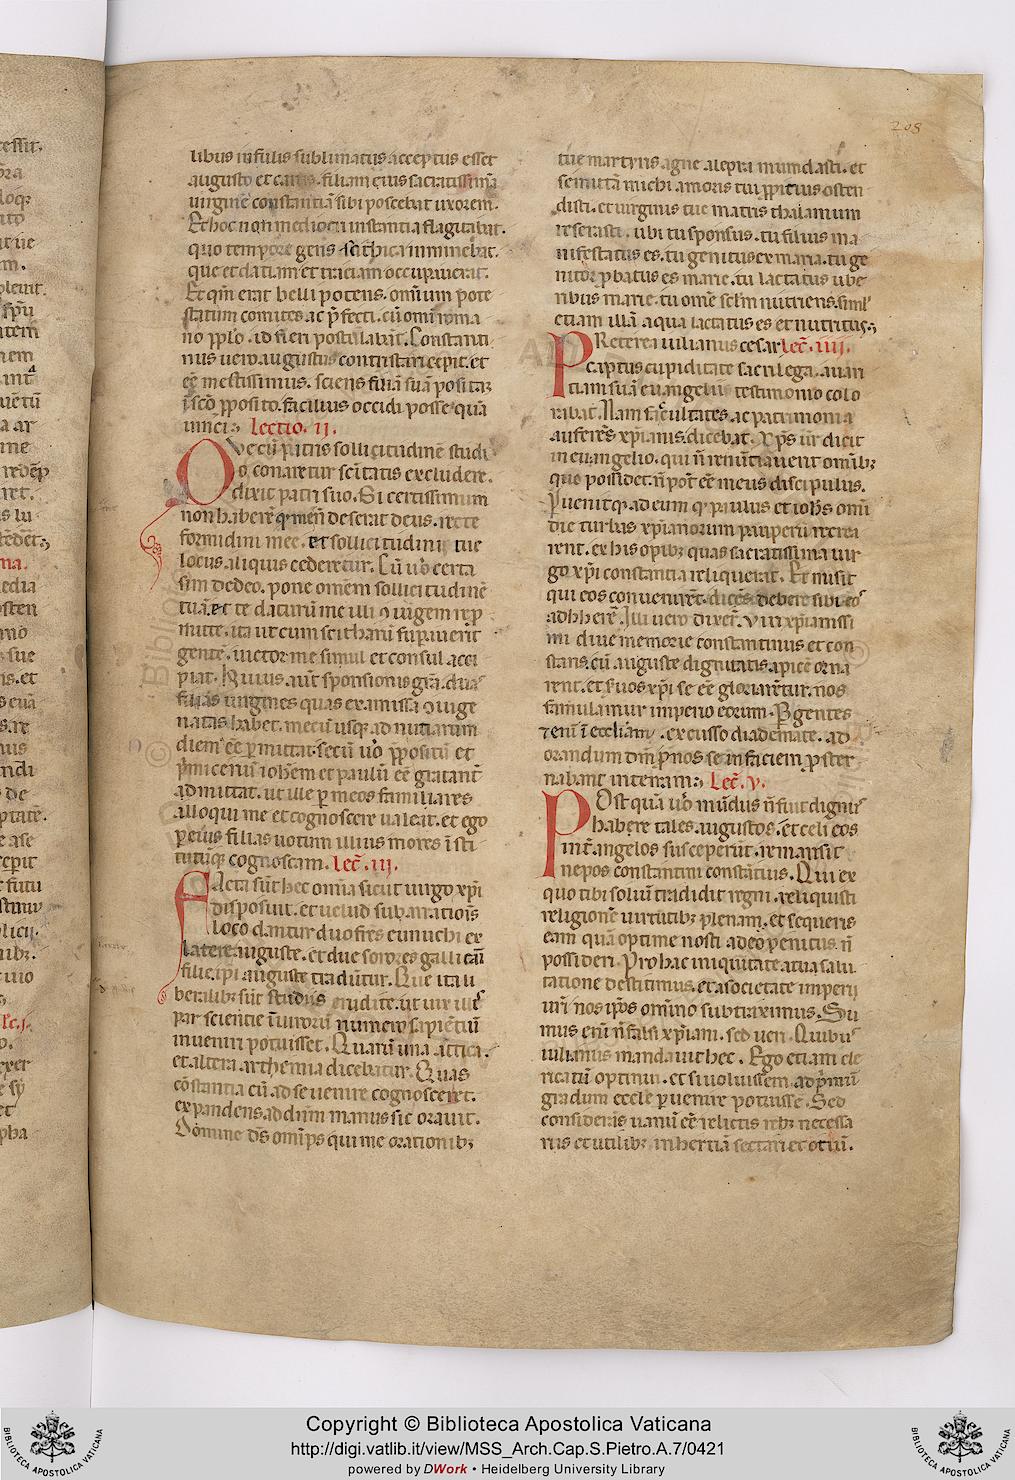 208
libus infulis sublimatus acceptus esset
augusto et caris. filiam eius sacratissimā
uirginē constantiā sibi poscebat uxorem.
Et hoc non mediocri instantia flagitabat.
quo tempore gens scithica imminebat.
que et datiam et traciam occupauerat.
Et qm̄ erat belli potens. omnium pote
statum comites ac p̄fecti. cū omni roma
no pplo. id fieri postulabāt. Constanti
nus uero augustus contristari cepit. et
eē mestissimus. sciens filiā suā positā
ī sc̄o pposito. facilius occidi posse quā
uinci. Lectio. ii.
Que cū patris sollicitudinē studi
o conaretur sc̄itatis excludere.
dixit patri suo. Si certissimum
non haberē qr̄ me n̄ deserat deus. recte
formidini mee. et sollicitudini tue
locus aliquis cederetur. Cū uō certa
sim de deo. pone omēm sollicitudinē
tuā. et te daturū me illi ꝯiugem rep
mitte. ita ut cum scithanī supauerit
gentē. uictor me simul et consulacci
piat. Huius aūt sponsionis grā. duas
filias uirgines quas ex amissa ꝯiuge
natas habet. mecū usqꝫ ad nuttarum
diem eē permittat. secū uō ppositū et
p̄micerium ioh̄em et paulū eē gratant̄
admittat. ut ille per meos familiares
alloqui me et cognoscere ualeat. et ego
per eius filias uotum illius mores ī sti
tutūqꝫ cognoscam. Lec̄. iii.
Facta sūt hec omīa sicut uirgo xp̄i
disposuit. et uelud subarrationis
loco dantur duo fr̄es eunuchi ex
latere auguste. et due sorores gallicāī
filie. ipi auguste tradūtur. Que ita li
beralibꝫ sūt studiis erudite. ut uix illis
par scientie ī uirorū numero sapiētiū
inueniri potuisset. Quarū una attica.
et altera arthemia dicebatur. Quas
cōstantia cū ad se uenire cognosceret.
expandens ad dn̄m manus sic orauit.
Domine ds̄ omīps qui me orationibꝫ
tue martyris agne a lepra mundasti. et
semitā michi amoris tui ppitius osten
disti. et uirginis tue matris thalamum
reserasti. ubi tu sponsus. tu filius ma
nifestatus es. tu genitus ex maria. tu ge
nitor pbatus es marie. tu lactatus ube
ribus marie. tu omē sclm̄ nutriens. siml'
etiam illā a qua lactatus es et nutritus.
Preterea iulianus cesar Lec̄. iiii.
captus cupiditate sacrilega. auari
tiam suā euangelii testimonio colo
rabat. Nam facultates ac patrimonia
auferēs xp̄ianis. dicebat. Xps̄ ur̄ dicit
in euangelio. qui n̄ renūtiauerit omībꝫ
que possidet. n̄ pot̄ eē meus discipulus.
Puenit qꝫ ad eum qr̄ paulus et ioh̄s omi
die turbas xp̄ianorum pauperū recrea
rent. ex his opibꝫ quas sacratissima uir
go xp̄i constantia reliquerat. Et misit
qui eos conuenirēt. dicēs debere sibi eos
adhherē. Illi uero dixer̄. Viri xp̄ianissi
mi diue memorie constantinus et con
stans. cū auguste dignitatis apicē orna
rent. et suos xp̄i se eē gloriarētur. nos
famulamur imperio eorum. Pgentes
enī ī ecclīam. excusso diademate. ad
orandum dm̄ pnos se in faciem pster
nabant in terram. Lec̄. v.
Post quā uō mūdus n̄ fuit dignus
habere tales augustos. et celi eos
int̄ angelos susceperūt. remansit
nepos constantini constātius. Qui ex
quo tibi soluū tradidit regni. reliquisti
religionē uirtutibꝫ plenam. et sequeris
eam quā optime nosti a deo penitus n̄
possideri. Pro hac iniquitate a tua salu
tatione destitimus. et a societate imperii
uri nos ipos omīno subtraximus. Su
mus enī n̄ falsi xp̄iani. sed ueri. Quibus
iulianus mandauit hec. Ego etiam cle
ricatū optinui. et si uoluissem ad p̄mū
gradum ecclē puenire potuisse. Sed
considerās uanū eē relictis rebꝫ necessa
riis et utilibꝫ. inhertiā sectari et otiū.
Copyright © Biblioteca Apostolica Vaticana
http://digi.vatlib.it/view/MSS_Arch.Cap.S.Pietro.A.7/0421
powered by DWork • Heidelberg University Library
BIBLIOTECA APOSTOLICA VATICANA
BIBLIOTECA APOSTOLICA VATICANA